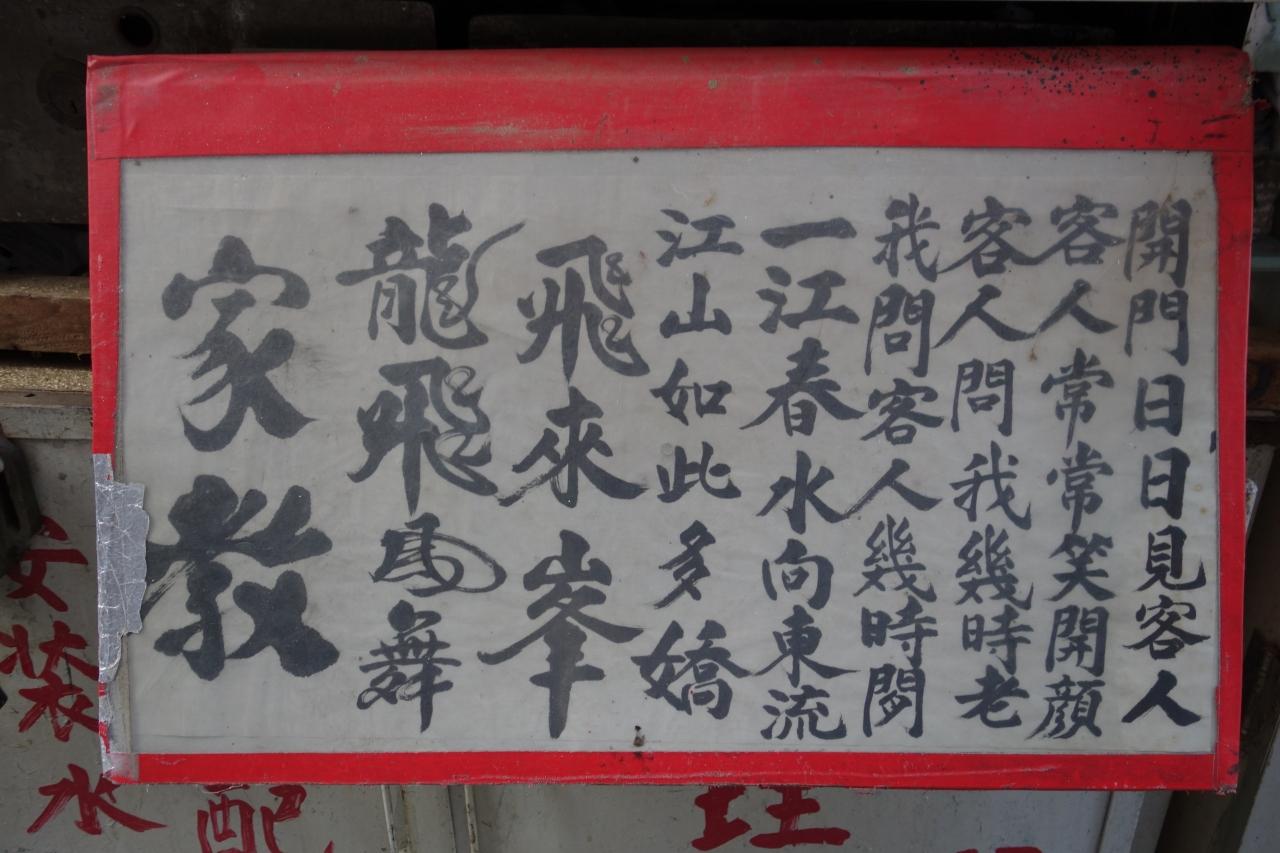 開門日日見客人
客人常常笑開顔
客人問我幾時老
我問客人幾時
一江春水向東流
江山如此多嬌
飛來峯
龍飛馬舞
家教
安装水
配